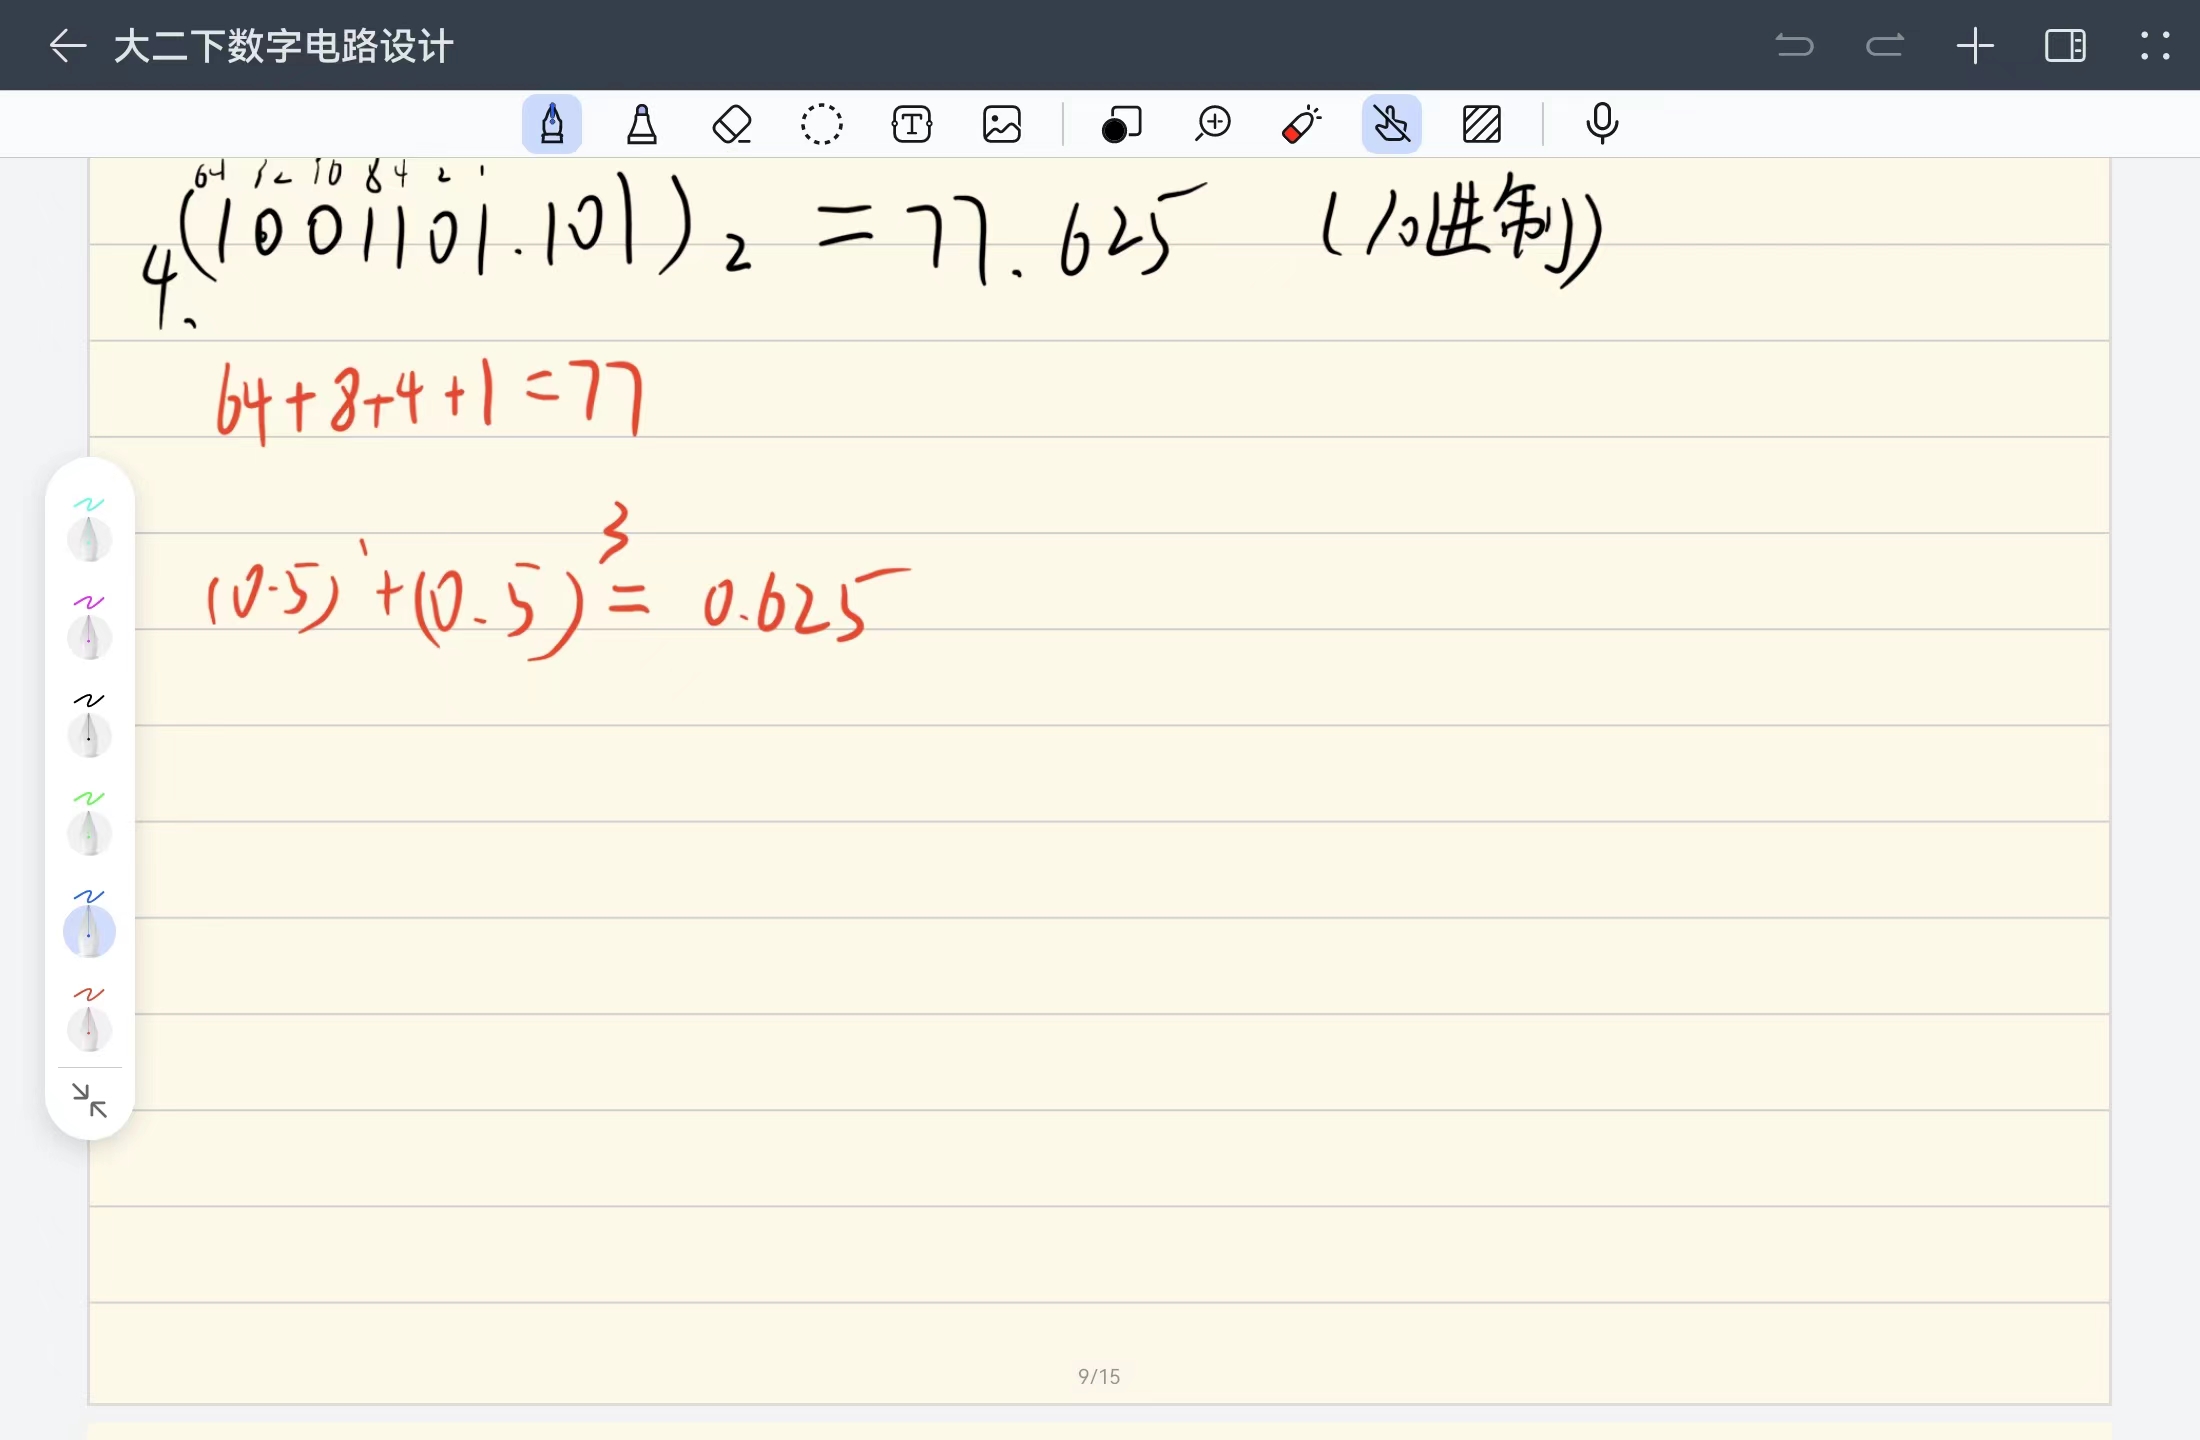 大二下数字电路设计
64 32 16 8 4 2 1
4、(1001101.101)₂ = 77.625 (10进制)
64+8+4+1=77
(0.5)¹+(0.5)³= 0.625
9/15